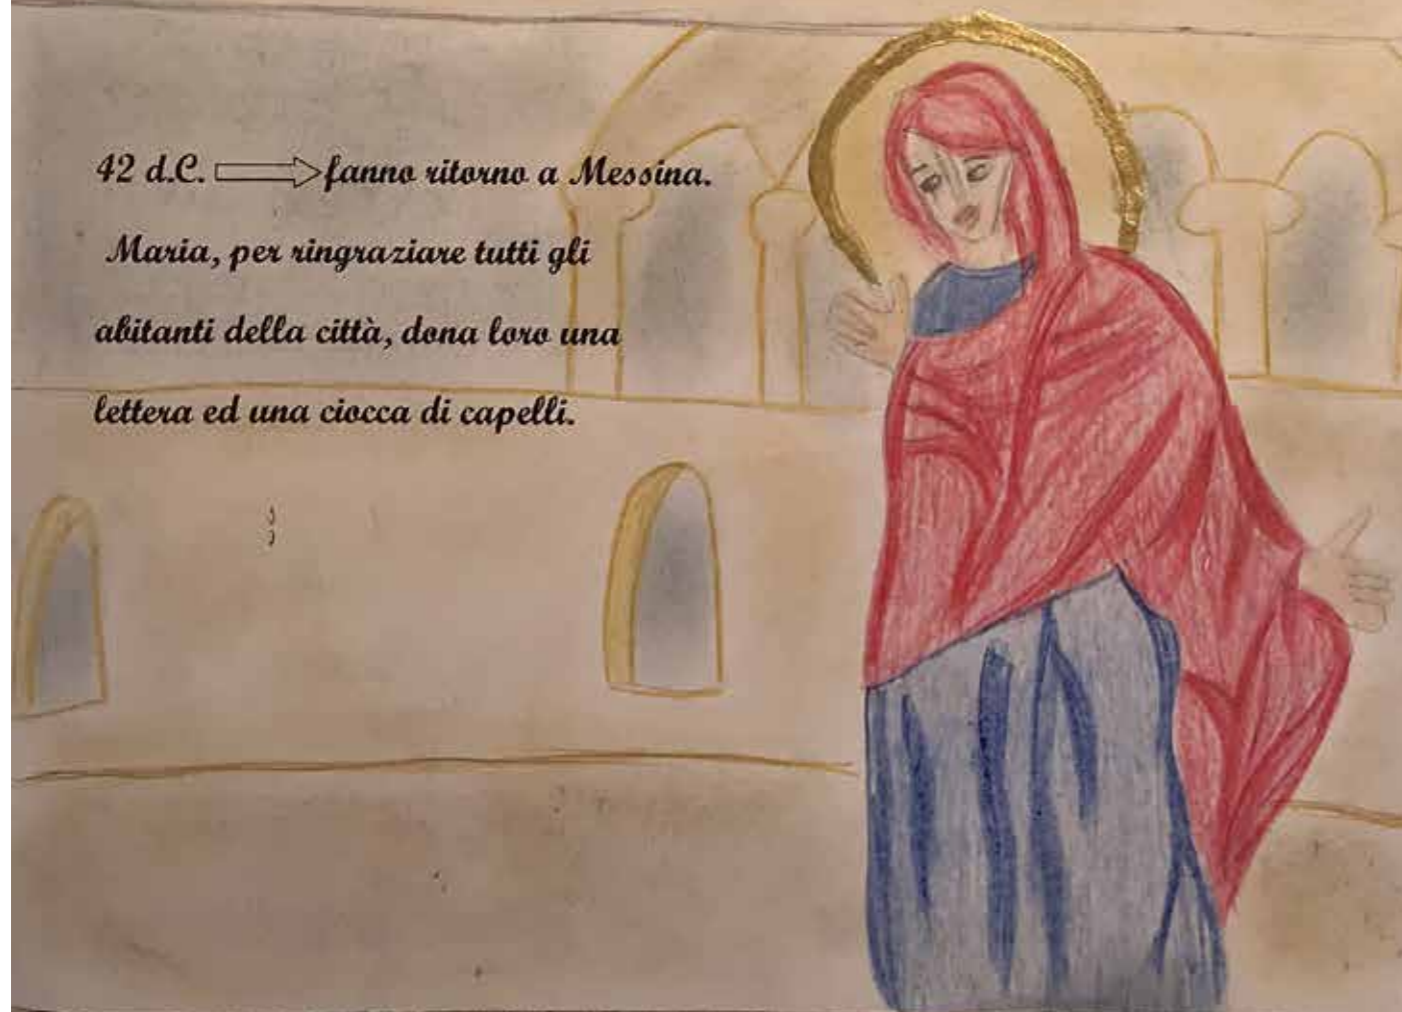 42 d.C. ⇨ fanno ritorno a Messina.
Maria, per ringraziare tutti gli
abitanti della città, dona loro una
lettera ed una ciocca di capelli.